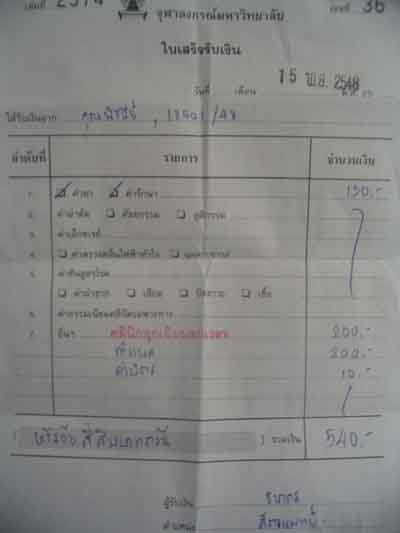 เล่มที่ 2514 เลขที่ 36
จุฬาลงกรณ์มหาวิทยาลัย
ใบเสร็จรับเงิน
วันที่ เดือน 15 พ.ย. 2548
ได้รับเงินจาก คุณ
ลำดับที่ รายการ จำนวนเงิน
1. ค่ายา ค่ารักษา 130.-
2. ค่าผ่าตัด ศัลยกรรม สูติกรรม
3. ค่าเอ็กซเรย์
4. ค่าตรวจคลื่นไฟฟ้าหัวใจ
5. ค่าชันสูตรโรค
ค่าผ่าซาก เลือด ปัสสาวะ เชื้อ
6. ค่าธรรมเนียมคลินิกเฉพาะทาง
7. อื่นๆ คลินิกฉุกเฉินนอกเวลา 200.-
200.-
ค่าบัตร 10.-
ห้าร้อยสี่สิบบาทถ้วน รวมเงิน 540.-
ผู้รับเงิน
ตำแหน่ง สัตวแพทย์